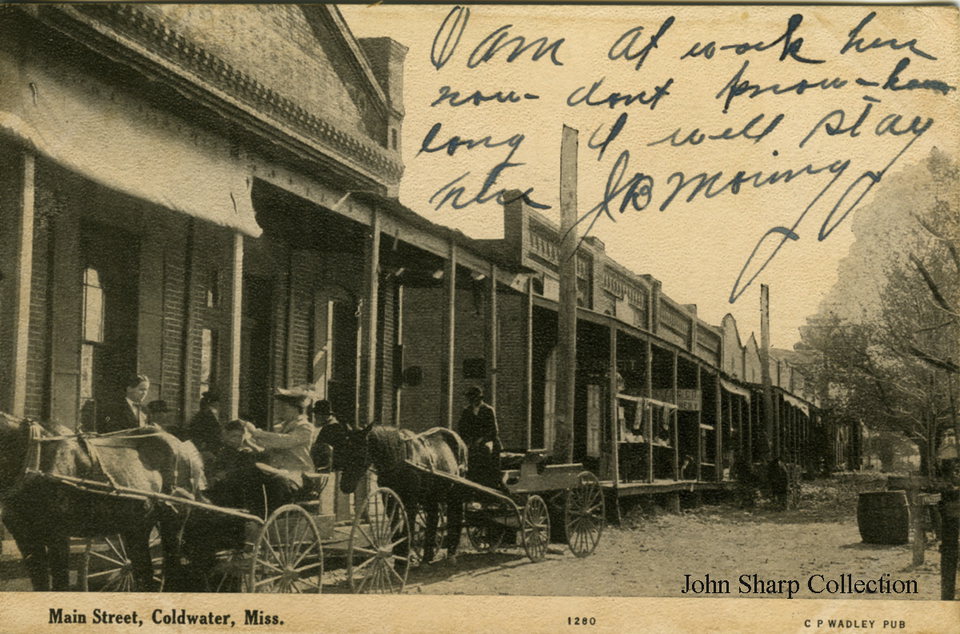 I am at work here
now- dont know-how
long I will stay
here JB Moring
John Sharp Collection
Main Street, Coldwater, Miss.
1280
C P WADLEY PUB